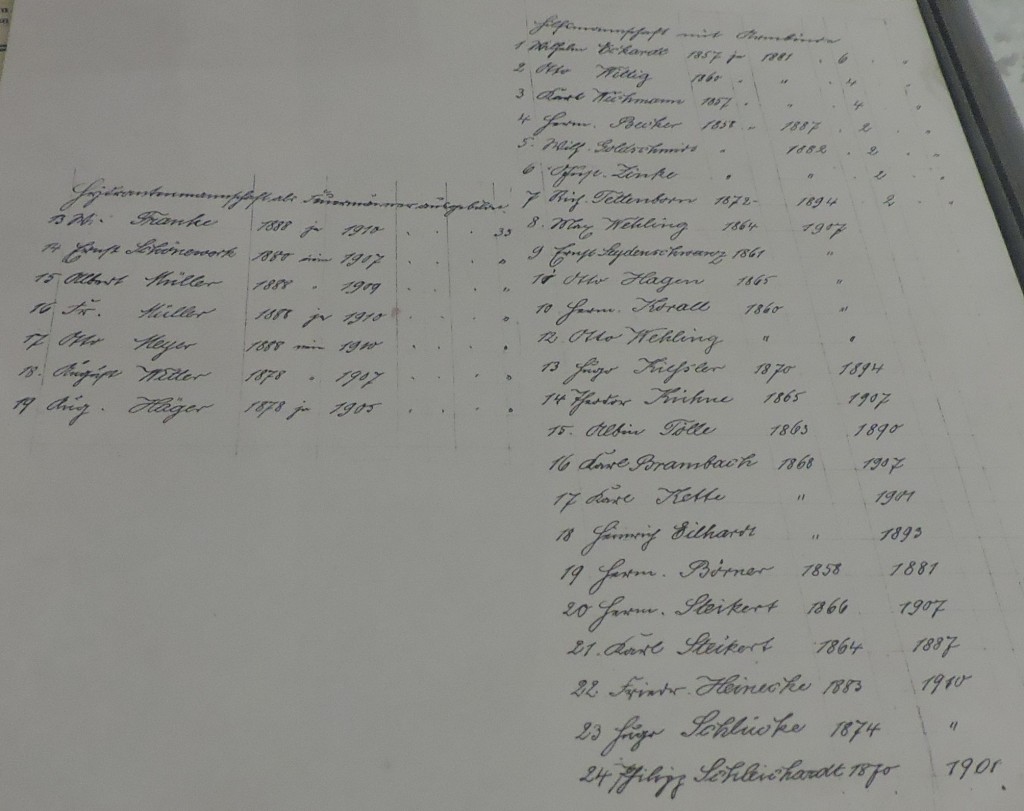 Hydrantenmannschaft als Feuermänner ausgebildet.
13 W. Franke 1888 ja 1910 . . . 33
14 Ernst Schönewerk 1880 nein 1907 . . . "
15 Albert Müller 1888 " 1909 . . . "
16 Fr. Müller 1888 ja 1910 . . . "
17 Otto Meyer 1888 nein 1910 . . . "
18. August Willer 1878 " 1907 . . . "
19 Aug. Häger 1878 ja 1905 . . . "
Hilfsmannschaft mit Armbinde
1 Wilhelm Eckardt 1857 ja 1881 . 6 . "
2 Otto Willig 1860 " " . 4 . "
3 Karl Wichmann 1857 " " . 4 . "
4 Herm. Becker 1858 " 1887 . 2 . "
5. Wilh. Goldschmidt " 1882 . 2 . "
6 Schust. Zinke " " 2 . "
7 Rich. Tettenborn 1872 1894 2 . "
8. Max Wehling 1864 1907
9 Ernst Seydenschwanz 1861 "
11 Otto Hagen 1865 "
10 Herm. Korall 1860 "
12 Otto Wehling " "
13 Hugo Kiessler 1870 1894
14 Theodor Kühne 1865 1907
15. Albin Tölle 1863 1890
16 Karl Brambach 1868 1907
17 Karl Kette " 1901
18 Heinrich Eilhardt " 1893
19 Herm. Börner 1858 1881
20 Herm. Steikert 1866 1907
21. Karl Steikert 1864 1887
22 Friedr. Heinecke 1883 1910
23 Hugo Schlücke 1874 "
24 Philipp Schleichardt 1870 1901.